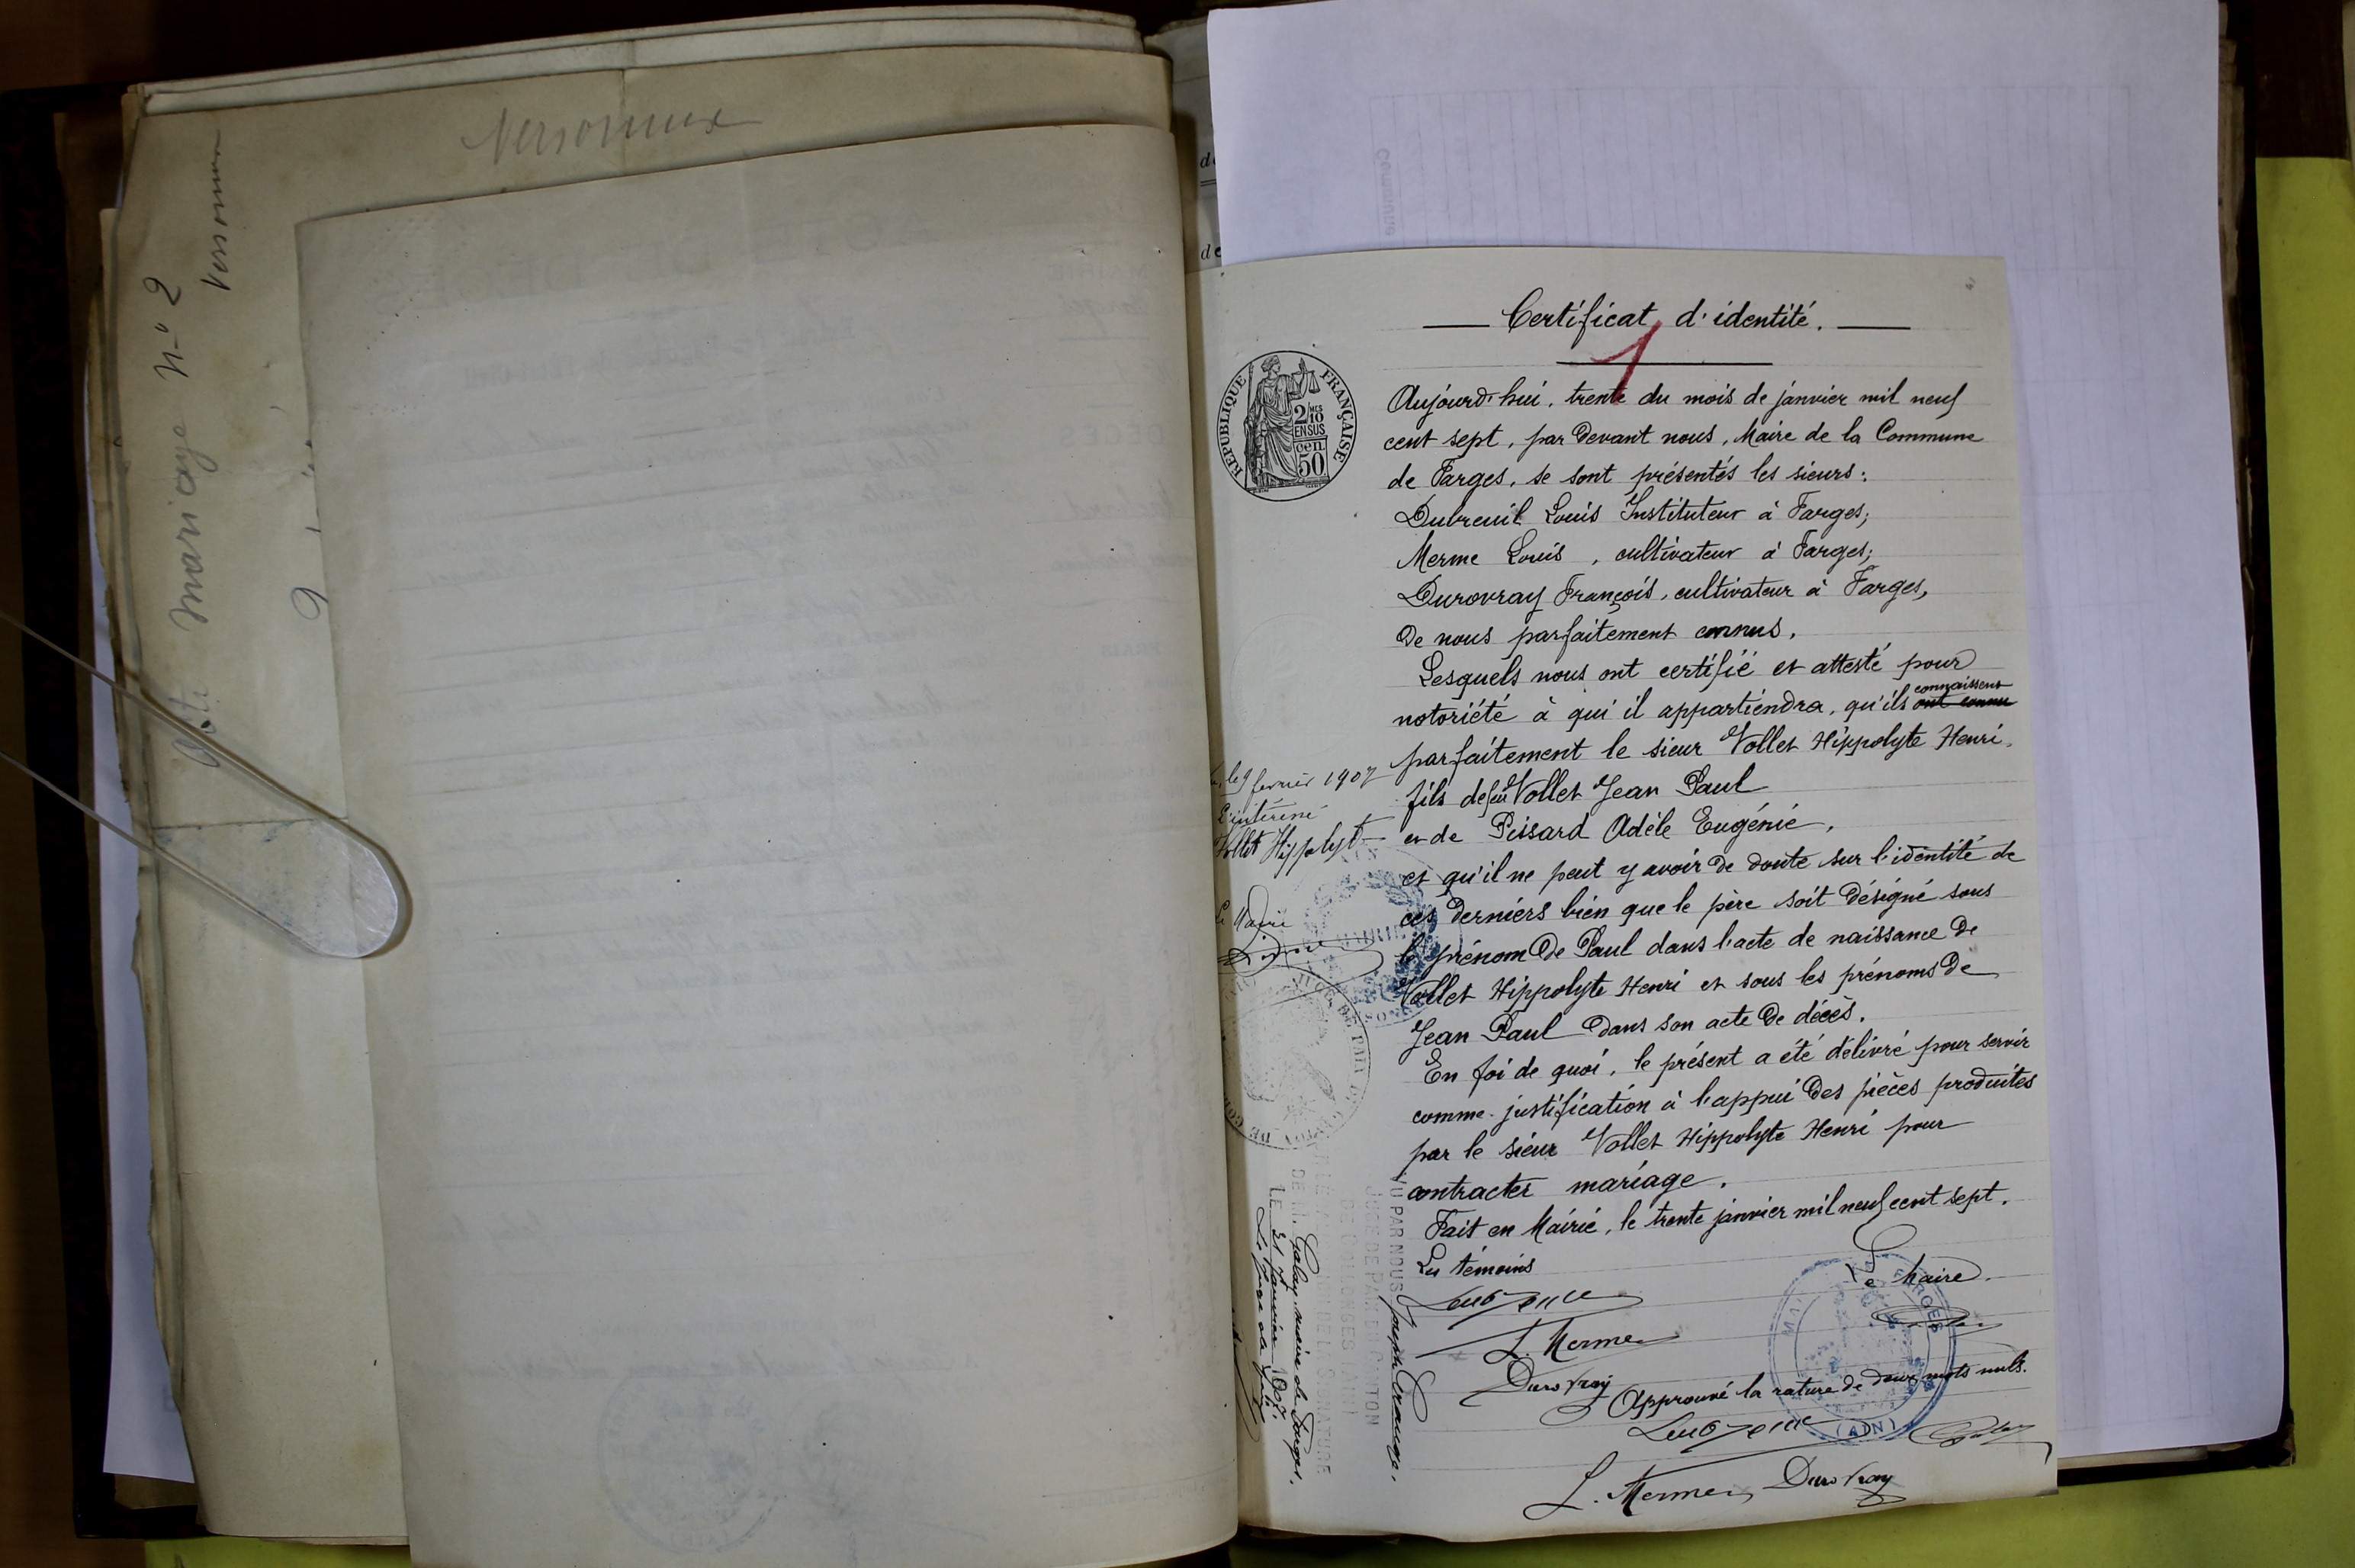 Versonnex
Acte mariage N° 2
Versonnex
9
Certificat d'identité.
1
RÉPUBLIQUE FRANÇAISE
2/MES
10
EN SUS
cen
50
Aujourd'hui, trente du mois de janvier mil neuf
cent sept, par devant nous, Maire de la Commune
de Farges, se sont présentés les sieurs :
Dubreuil Louis Instituteur à Farges;
Merme Louis, cultivateur à Farges;
Durovray François, cultivateur à Farges,
De nous parfaitement connus.
Lesquels nous ont certifié et attesté pour
notoriété à qui il appartiendra, qu'ils ont connu
connaissent
parfaitement le sieur Vollet Hippolyte Henri,
fils de feu Vollet Jean Paul
et de Pissard Adèle Eugénie,
et qu'il ne peut y avoir de doute sur l'identité de
ces derniers bien que le père soit désigné sous
le prénom de Paul dans l'acte de naissance de
Vollet Hippolyte Henri et sous les prénoms de
Jean Paul dans son acte de décès.
En foi de quoi, le présent a été délivré pour servir
comme justification à l'appui des pièces produites
par le sieur Vollet Hippolyte Henri pour
contracter mariage.
Fait en Mairie, le trente janvier mil neuf cent sept.
Les témoins
Le Maire.
L. Merme
Durovray
Approuvé la rature de deux mots nuls.
(AIN)
L. Merme Durovray
le 9 février 1907
Vollet Hippolyte
Le Maire
VU PAR NOUS Joseph
JUGE DE PAIX DU CANTON
DE COLLONGES (AIN)
DE M. Galay maire de Farges.
LE 31 Janvier 1907
Le juge de paix